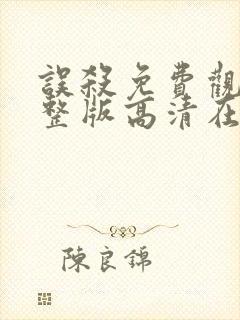 誤殺免費觀
整版高清在
陳良錦